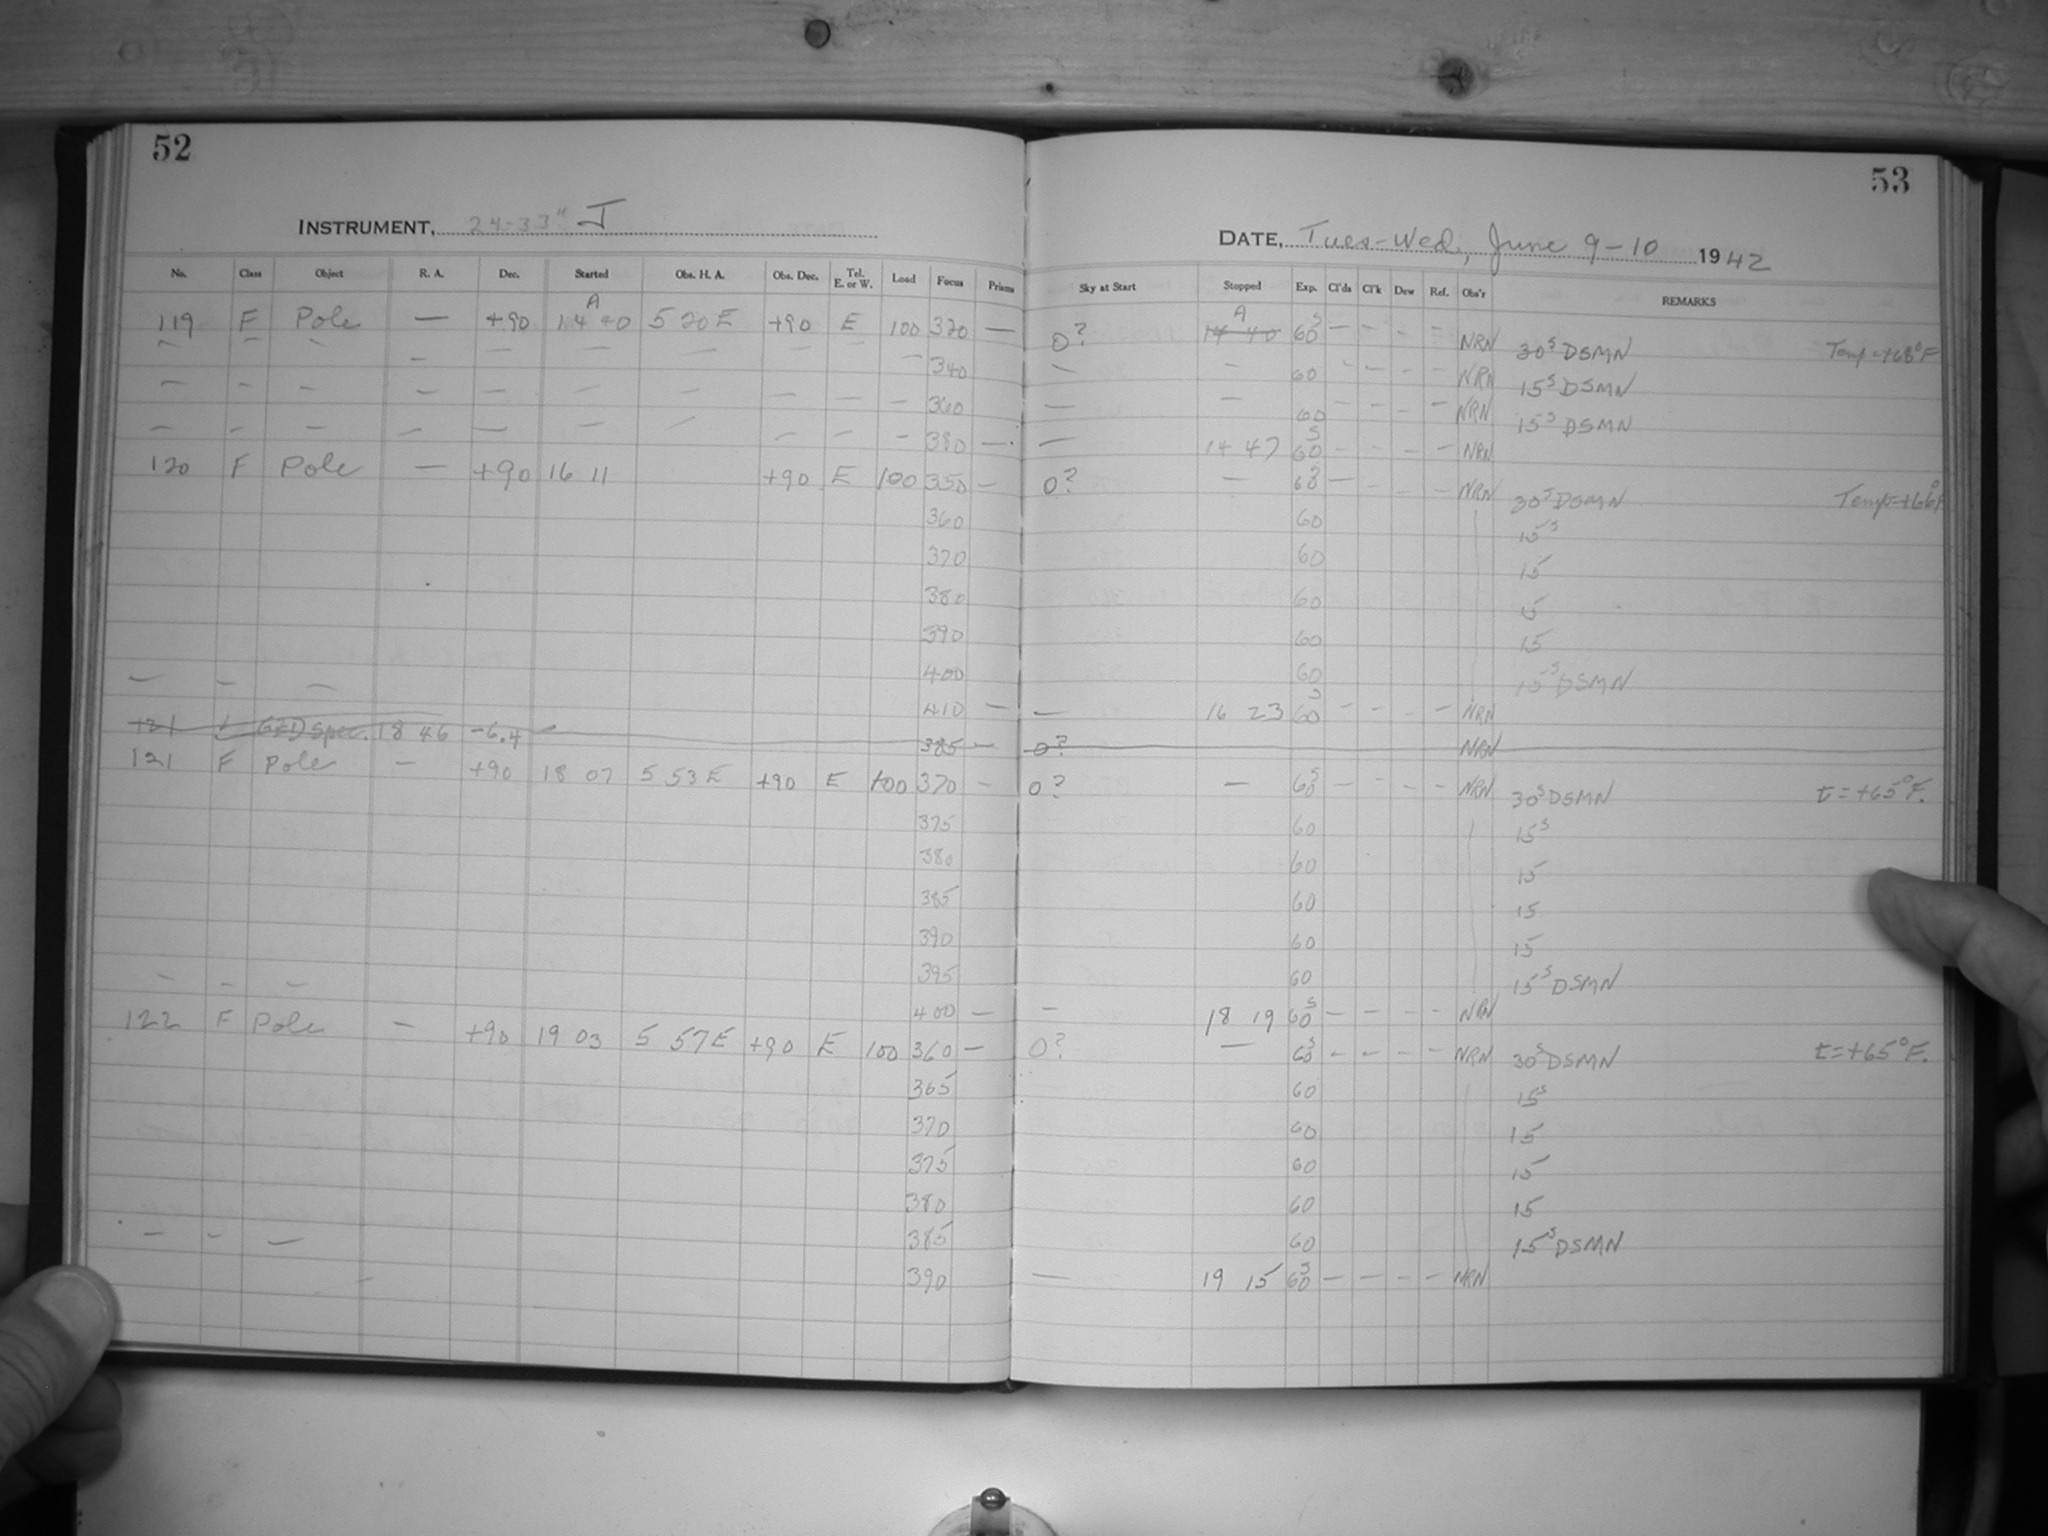 52
53
INSTRUMENT, 24-33" J
DATE, Tues-Wed, June 9-10 1942
No. Class Object R. A. Dec. Started Obs. H. A. Obs. Dec. Tel. E. or W. Load Focus Prisms Sky at Start Stopped Exp. Cl'ds Cl'k Dew Ref. Obs'r REMARKS
A A
119 F Pole — +90 14 40 5 20 E +90 E 100 320 — 0? 14 40 60s — — — — NRN 30s DSMN Temp = +68°F
— — — — — — — — — — 340 — — 60 — — — — NRN 15s DSMN
— — — — — — — — — — 360 — — 60 — — — — NRN 15s DSMN
— — — — — — — — — — 380 — — 14 47 60s — — — — NRN
120 F Pole — +90 16 11 +90 E 100 350 — 0? — 60s — — — — NRN 30s DSMN Temp=+66F
360 60 15s
370 60 15
380 60 15
390 60 15
— — — 400 60 15s DSMN
410 — — 16 23 60s — — — — NRN
121 GZD Spec. 18 46 -6.4 — 385 — 0? NRN
121 F Pole — +90 18 07 5 53 E +90 E 100 370 — 0? — 60s — — — — NRN 30s DSMN t = +65°F.
375 60 15s
380 60 15
385 60 15
390 60 15
— — — 395 60 15s DSMN
400 — — 18 19 60s — — — — NRN
122 F Pole — +90 19 03 5 57 E +90 E 100 360 — 0? — 60s — — — — NRN 30s DSMN t = +65°F.
365 60 15s
370 60 15
375 60 15
380 60 15
— — — 385 60 15s DSMN
390 — 19 15 60s — — — — NRN